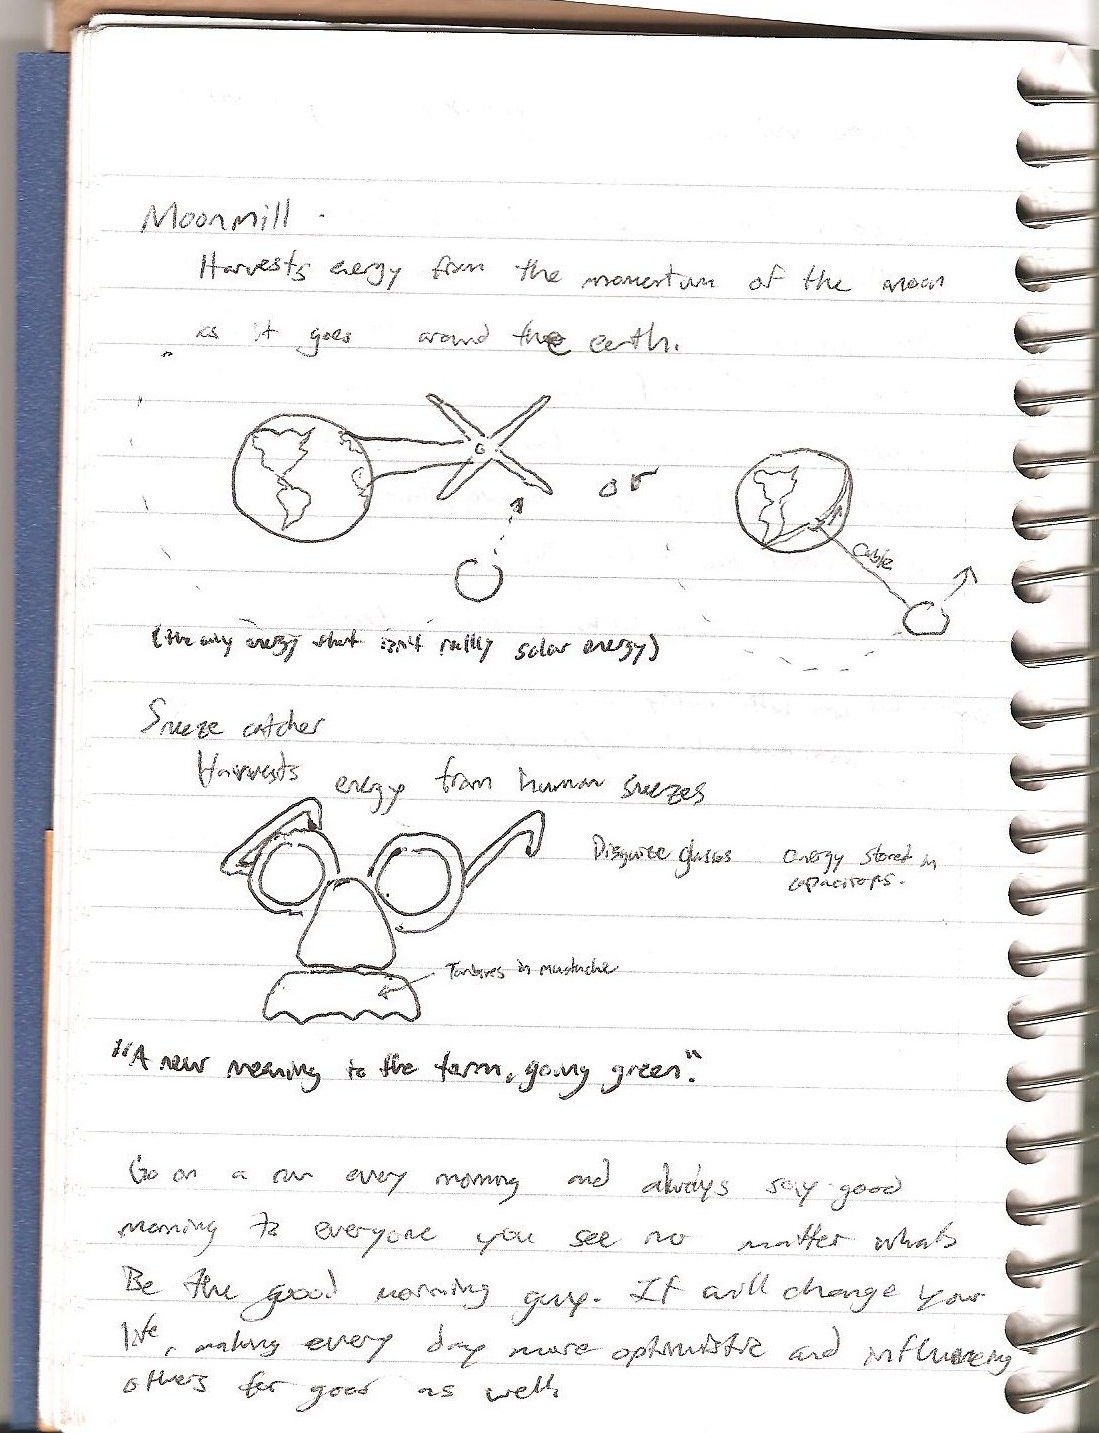 Moonmill
Harvests energy from the momentum of the moon
as it goes around the earth.
or
Cable
(the only energy that isn't really solar energy)
Sneeze catcher
Harvests energy from human sneezes
Disguise glasses energy stored in
capacitors.
Turbines in mustache
"A new meaning to the term, going green."
Go on a run every morning and always say good
morning to everyone you see no matter whats
Be the good morning guy. It will change your
life, making every day more optimistic and influencing
others for good as well.